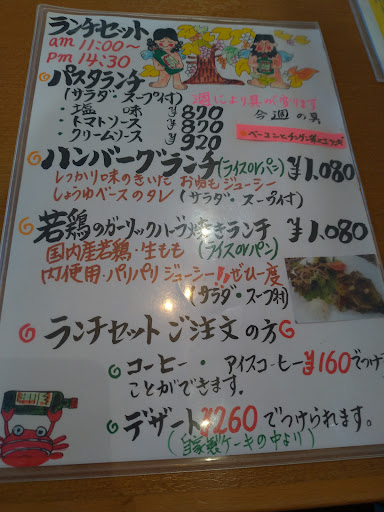 ランチセット
am 11:00〜
pm 14:30
パスタランチ
(サラダ・スープ付)
週により具が変ります
今週の具
・塩味 ¥870
・トマトソース ¥870
・クリームソース ¥920
ハンバーグランチ(ライスorパン) ¥1,080
しっかり味のきいたお肉もジューシー
しょうゆベースのタレ (サラダ・スープ付)
若鶏のガーリックハーブ焼きランチ ¥1,080
国内産若鶏・生もも (ライスorパン)
肉使用・パリパリジューシー!!ぜひ一度
(サラダ・スープ付)
ランチセットご注文の方
コーヒー・アイスコーヒー¥160でつけ
ことができます。
デザート¥260でつけられます。
(自家製ケーキの中より)